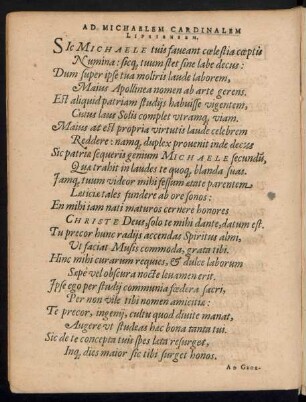 AD MICHAELEM CARDINALEM
LIPSIENSEM.
SIc MICHAELE tuis faueant cœlestia cœptis
Numina: sicq́; tuum stet sine labe decus:
Dum super ipse tua moliris laude laborem,
Maius Apollinea nomen ab arte gerens.
Est aliquid patriam studijs habuisse vigentem,
Cuius laus Solis complet vtramq; viam.
Maius at est propria virtutis laude celebrem
Reddere: namq; duplex prouenit inde decus
Sic patriæ sequeris genium MICHAELE secundū,
Qua trahit in laudes te quoq, blanda suas.
Jamq, tuum videor mihi fessum ætate parentem
Læticia tales fundere ab ore sonos:
En mihi iam nati maturos cernere honores
CHRISTE Deus, solo te mihi dante, datum est.
Tu precor hunc radijs accendas Spiritus almi,
Vt faciat Musis commoda, grata tibi.
Hinc mihi curarum requies, & dulce laborum
Sæpè vel obscura nocte leuamen erit.
Ipse ego per studij communia fœdera sacri,
Per non vile tibi nomen amicitiæ:
Te precor, ingenij, cultu quod diuite manat,
Augere vt studeas hac bona tanta tui.
Sic de te concepta tuis spes læta resurget,
Inq, dies maior sic tibi surget honos.